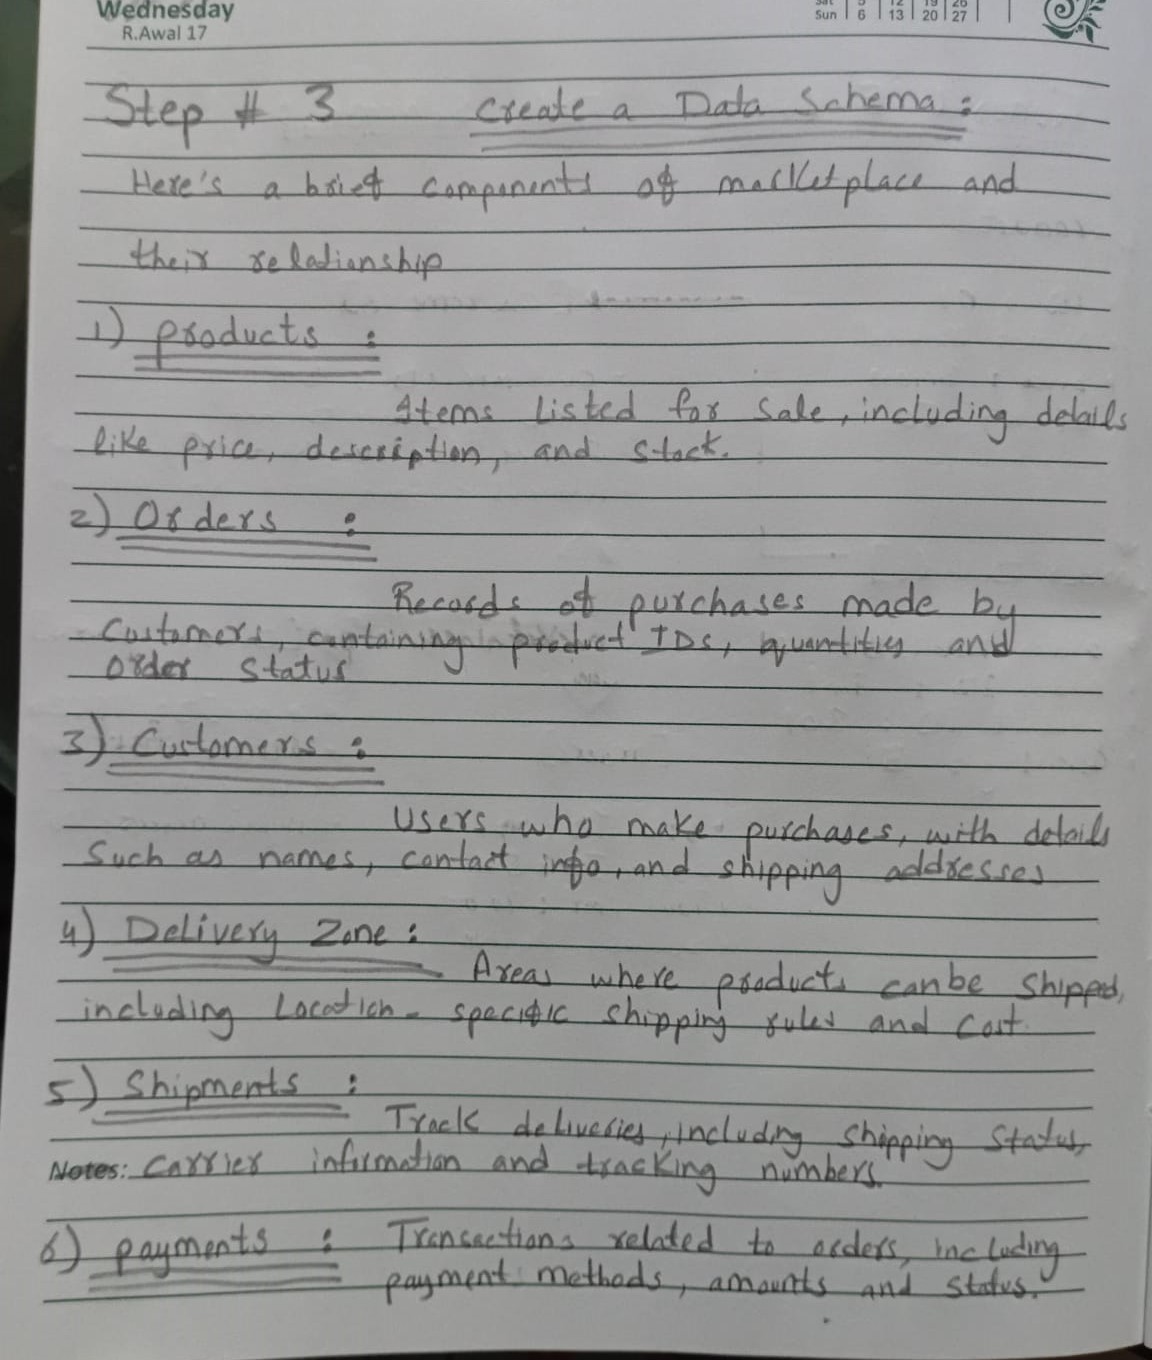 Wednesday
R.Awal 17
Sat 5 12 19 26
Sun 6 13 20 27
Step # 3 Create a Data Schema :
Here's a brief components of marketplace and
their relationship
1) products :
Items Listed for Sale, including details
like price, description, and Stock.
2) Orders :
Records of purchases made by
Customers, containing product IDs, quantities and
Order Status
3) Customers :
Users who make purchases, with details
Such as names, contact info, and shipping addresses
4) Delivery Zone :
Areas where products canbe Shipped,
including Location - specific Shipping rules and Cost.
5) Shipments :
Track deliveries, including Shipping Status,
Notes: Carrier information and tracking numbers.
6) payments : Transactions related to orders, including
payment methods, amounts and Status.